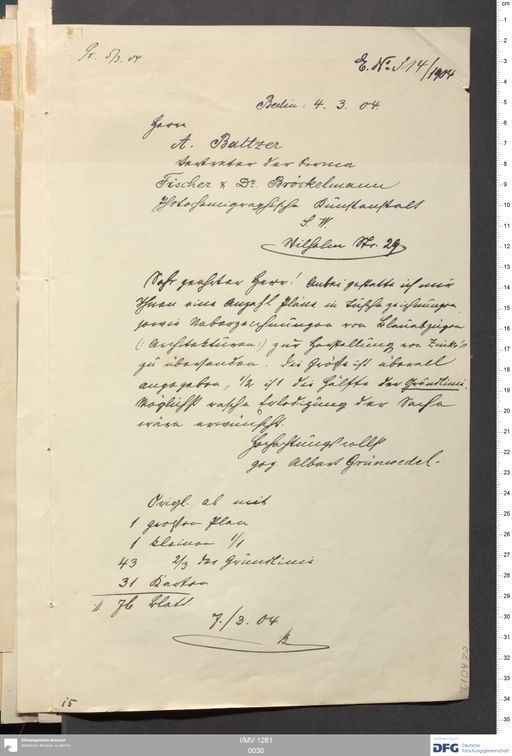 Pr. 5/3. 04
E. No 314/1904
Berlin. 4. 3. 04
Herrn
A. Baltzer
Vertreter der Firma
Fischer & Dr. Bröckelmann
Photochemigraphische Kunstanstalt
S. W.
Wilhelm Str. 29
Sehr geehrter Herr! Anbei gestatte ich mir
Ihnen eine Anzahl Pläne in Tuschezeichnungen,
sowie Ueberzeichnungen von Blauabzügen
(: Architekturen :) zur Herstellung von Zinko's
zu übersenden. Die Größe ist überall
angegeben, 1/2 ist die Hälfte der Grundlinie.
Möglichst rasche Erledigung der Sache
wäre erwünscht.
Hochachtungsvollst
gez. Albert Grünwedel.
Origl. ab mit
1 großen Plan
1 kleinen 1/1
43 2/3 der Grundlinie
31 Karton
76 Blatt
7./3. 04
15
I/MV 1281
0030
Ethnologisches Museum
Staatliche Museen zu Berlin
DFG Deutsche
Forschungsgemeinschaft